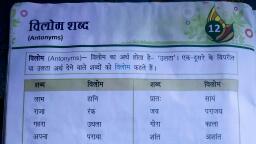 विलोम शब्द
(Antonyms)
12
विलोम (Antonyms)– विलोम का अर्थ होता है– 'उलटा'। एक-दूसरे के विपरीत
या उलटा अर्थ देने वाले शब्दों को विलोम कहते हैं।
शब्द विलोम शब्द विलोम
लाभ हानि प्रातः सायं
राजा रंक जय पराजय
गहरा उथला गोरा काला
अपना पराया शांत अशांत